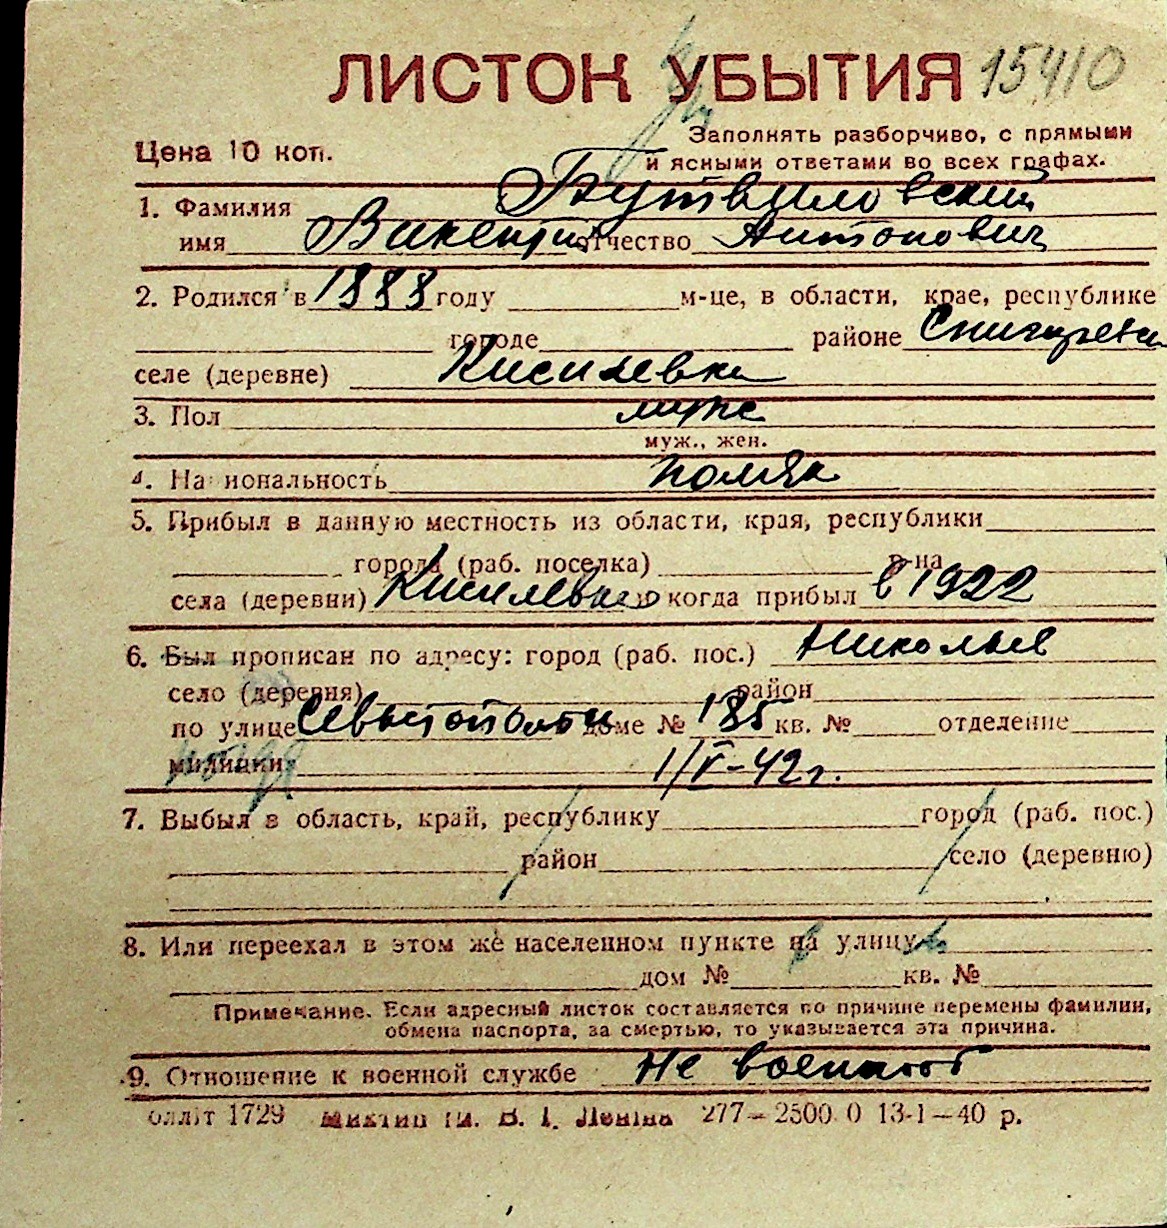 ЛИСТОК УБЫТИЯ 15410
Цена 10 коп.
Заполнять разборчиво, с прямыми
и ясными ответами во всех графах.
1. Фамилия Бутвиловский
имя Викентий отчество Антонович
2. Родился в 1888 году м-це, в области, крае, республике
городе районе Снигиревк
селе (деревне) Киселевка
3. Пол муж
муж., жен.
4. На иональность поляк
5. Прибыл в данную местность из области, края, республики
города (раб. поселка) р-на
села (деревни) Киселевка когда прибыл в 1922
6. Был прописан по адресу: город (раб. пос.) Николаев
село (деревня) район
по улице Севастополь доме № 185 кв. № отделение
милиции 1/V-42г.
7. Выбыл в область, край, республику город (раб. пос.)
район село (деревню)
8. Или переехал в этом же населенном пункте на улицу
дом № кв. №
Примечание. Если адресный листок составляется по причине перемены фамилии,
обмена паспорта, за смертью, то указывается эта причина.
9. Отношение к военной службе не военнооб
1729 277—2500 0 13-1—40 р.